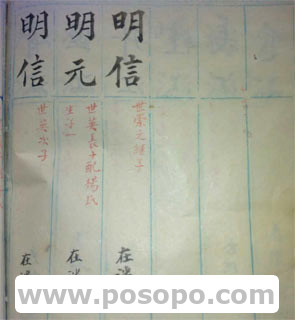 明信
世榮之継子
在
明元
世英長子配楊氏
生子一
在
明信
世英次子
在
www.posopo.com